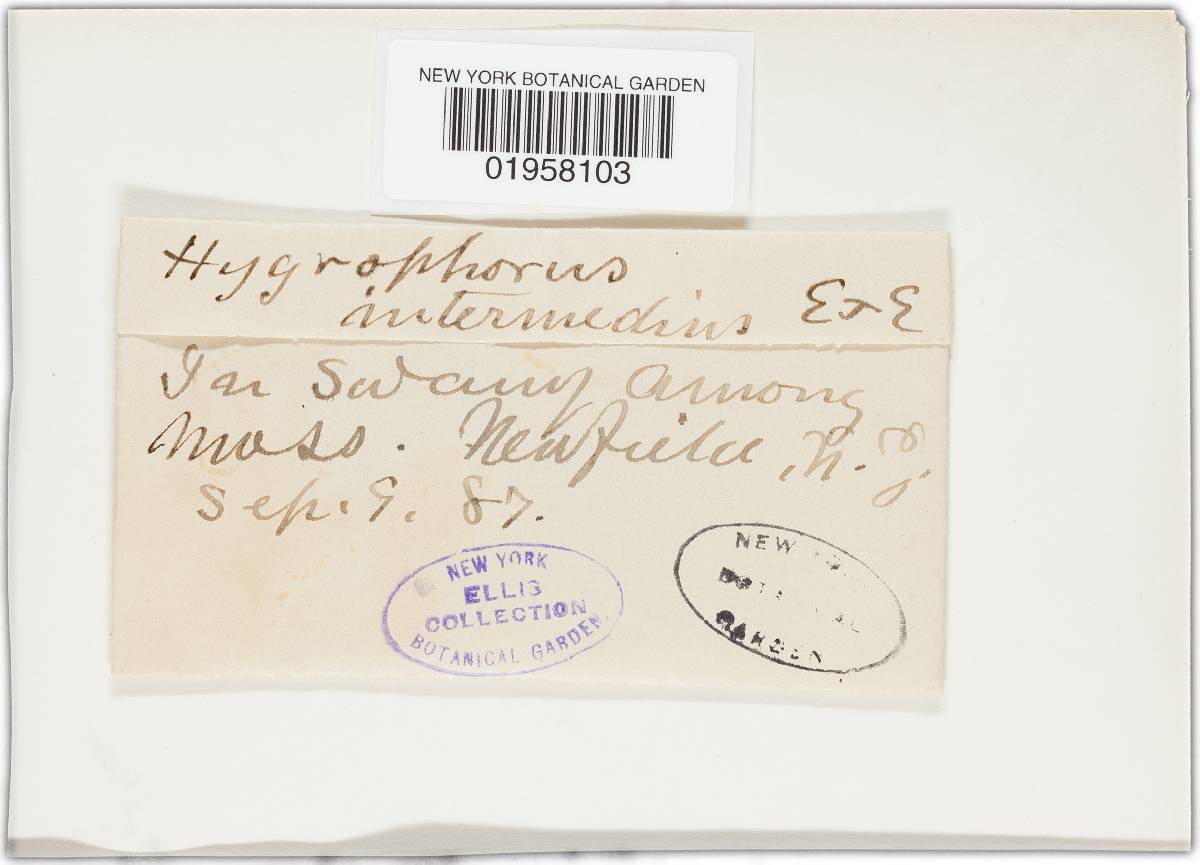 NEW YORK BOTANICAL GARDEN
01958103
Hygrophorus
intermedius E & E
In Swamp among
Moss. Newfield, N. J.
Sep. 9. 87.
NEW YORK
ELLIS
COLLECTION
BOTANICAL GARDEN
NEW YORK
BOTANICAL
GARDEN